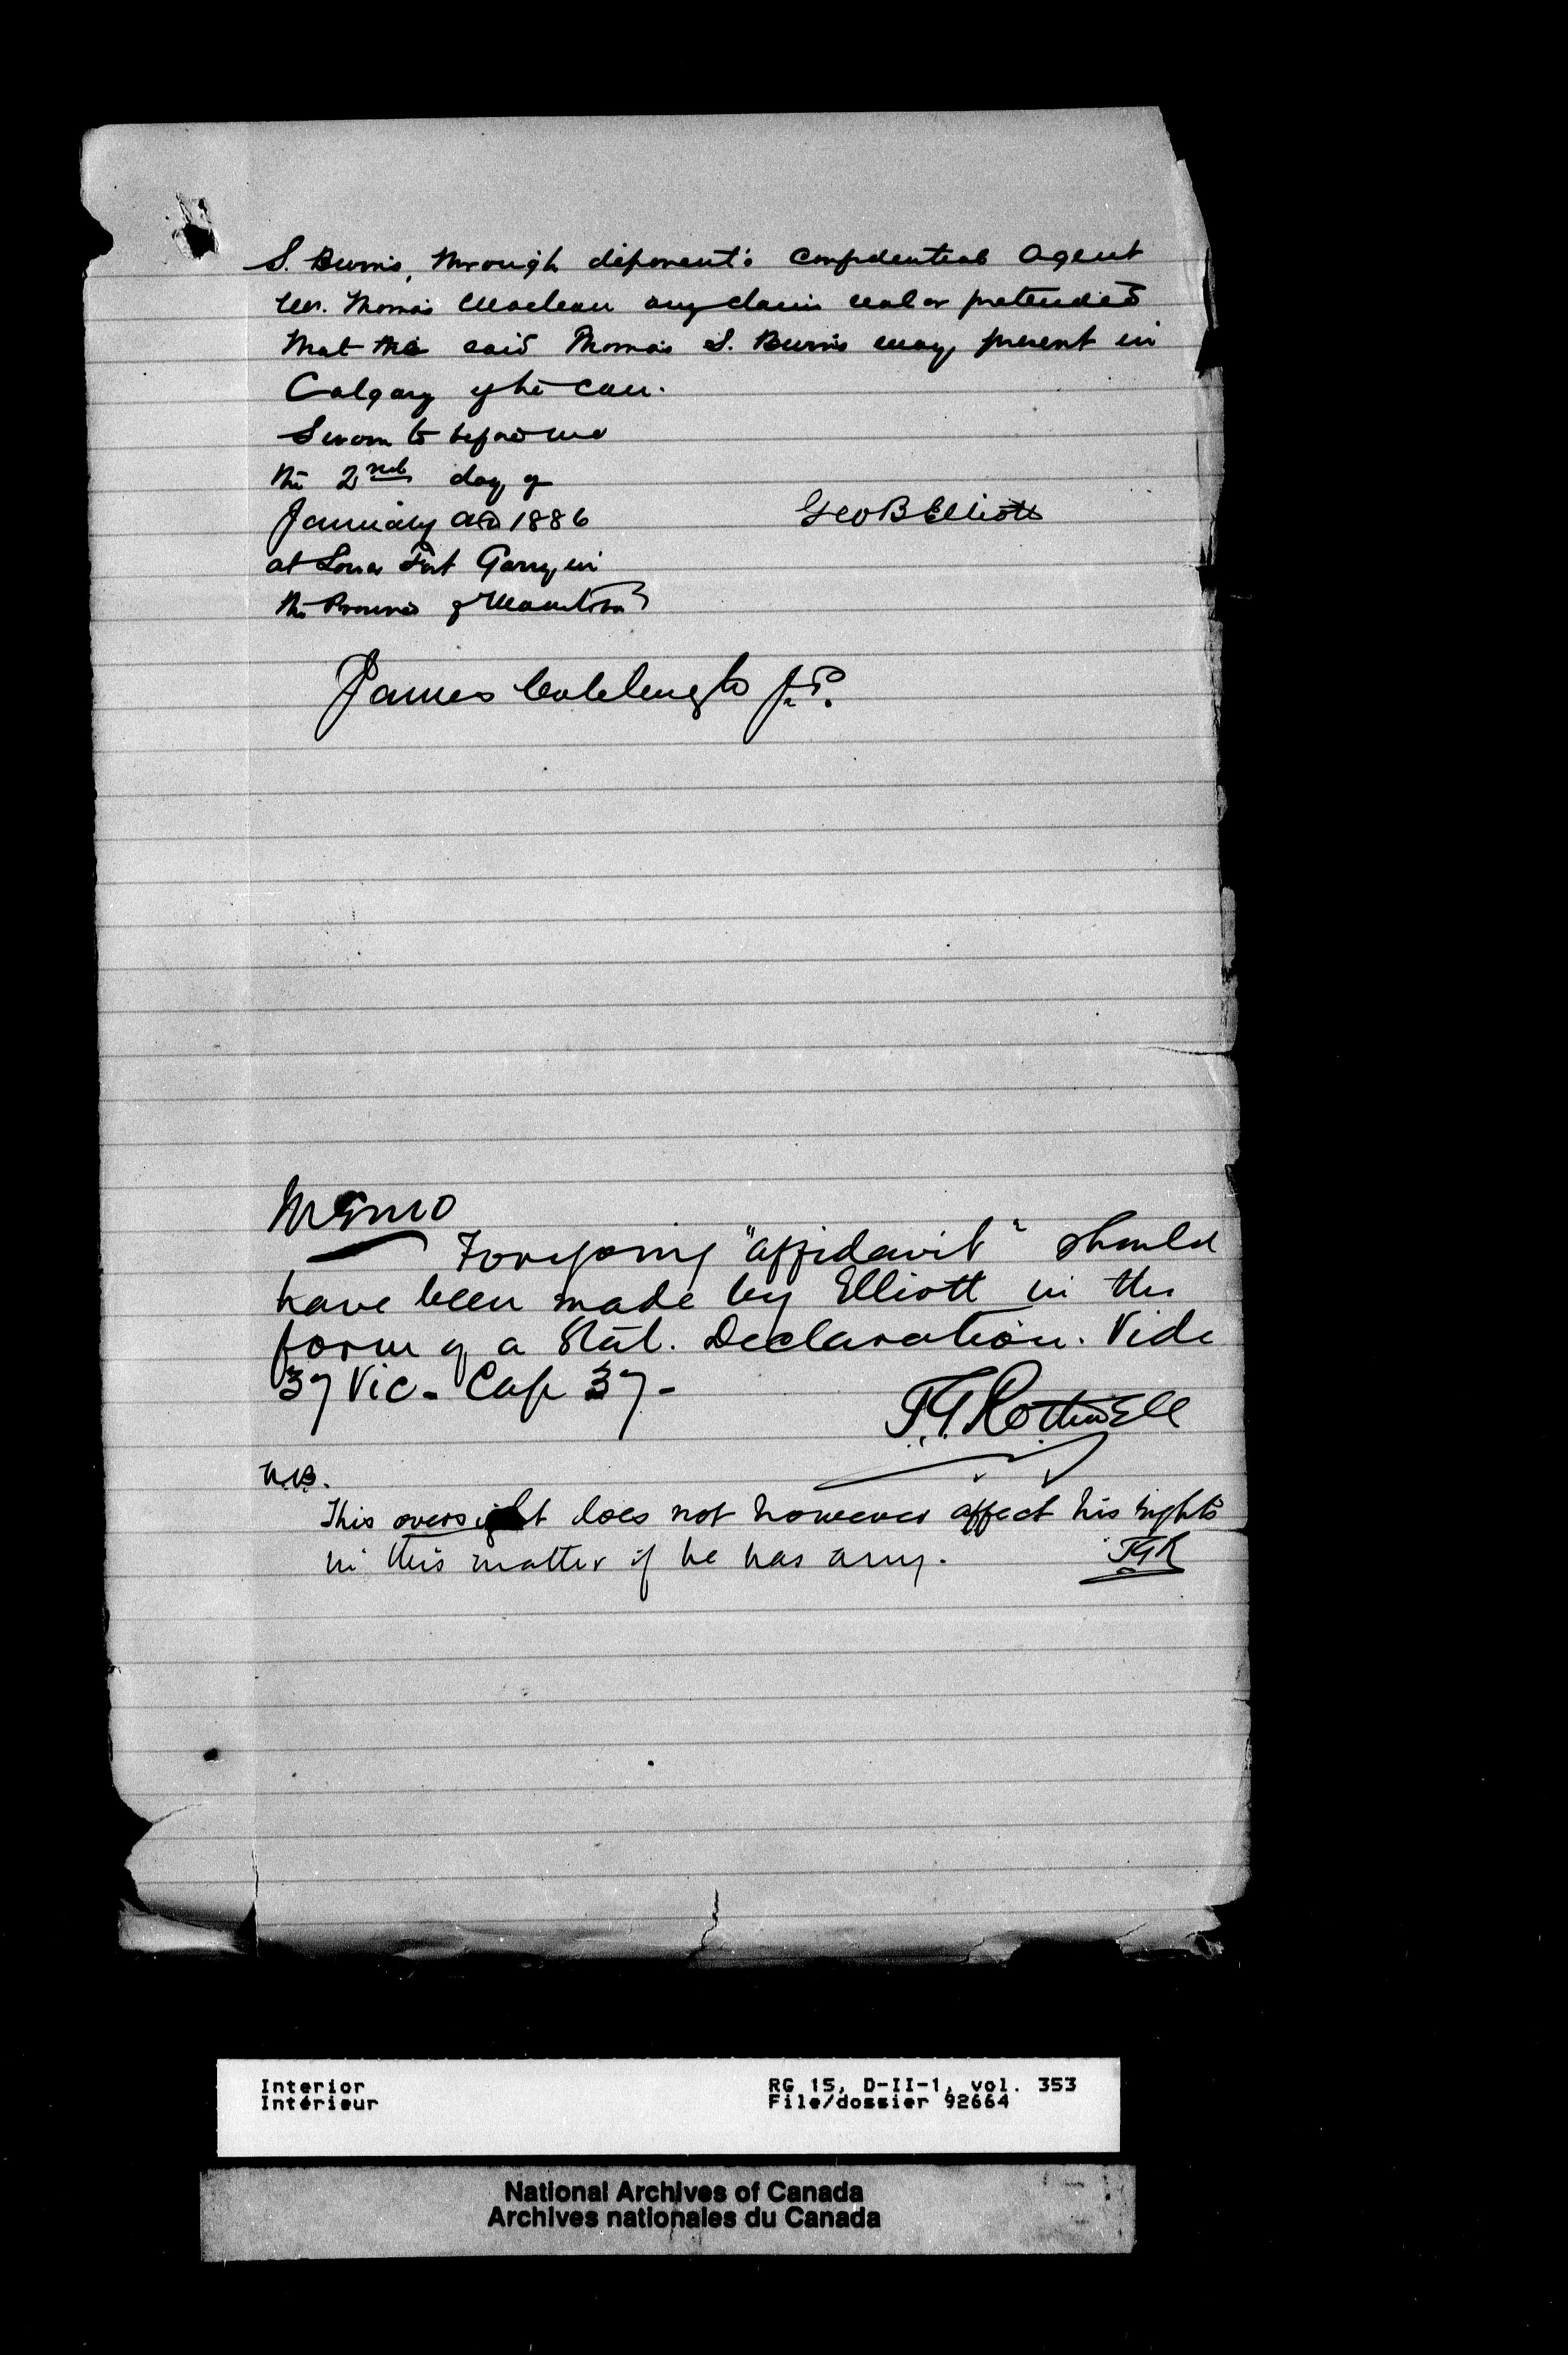 S. Burns, through deponent's confidential Agent
Mr. Thomas Maclean any claim real or pretended
that the said Thomas S. Burns may present in
Calgary if he can.
Sworn to before me
the 2nd day of
January AD 1886
Geo B Elliott
at Lower Fort Garry, in
the Province of Manitoba
James Colcleugh J.P.
Memo
Foregoing "affidavit" should
have been made by Elliott in the
form of a Stat. Declaration. Vide
37 Vic - Cap 37 -
T.G. Rothwell
N.B.
This oversight does not however affect his rights
in this matter if he has any.
TGR
Interior
Intérieur
RG 15, D-II-1, vol. 353
File/dossier 92664
National Archives of Canada
Archives nationales du Canada